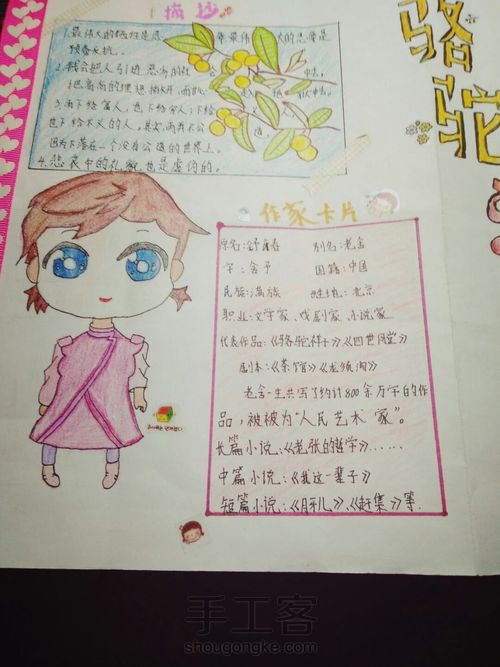 摘抄
1.最伟大的牺牲是忍 ，最伟大的忍辱是
预备反抗。
2.钱会把人引进恶劣的社 中去，
把高尚的理想撇开，而甘心走入地狱中去。
3.雨下给富人，也下给穷人；下给义 ，
也下给不义的人。其实，雨并不公道，
因为下落在一个没有公道的世界上。
4.悲哀中的礼貌也是虚伪的。
骆驼
作家卡片
原名：舒庆春 别名：老舍
字：舍予 国籍：中国
民族：满族 出生地：北京
职业：文学家、戏剧家、小说家
代表作品：《骆驼祥子》《四世同堂》
剧本：《茶馆》《龙须沟》
老舍一生共写了约计800余万字的作
品，被被为“人民艺术家”。
长篇小说：《老张的哲学》……
中篇小说：《我这一辈子》
短篇小说：《月牙儿》、《赶集》等.
手工客
shougongke.com